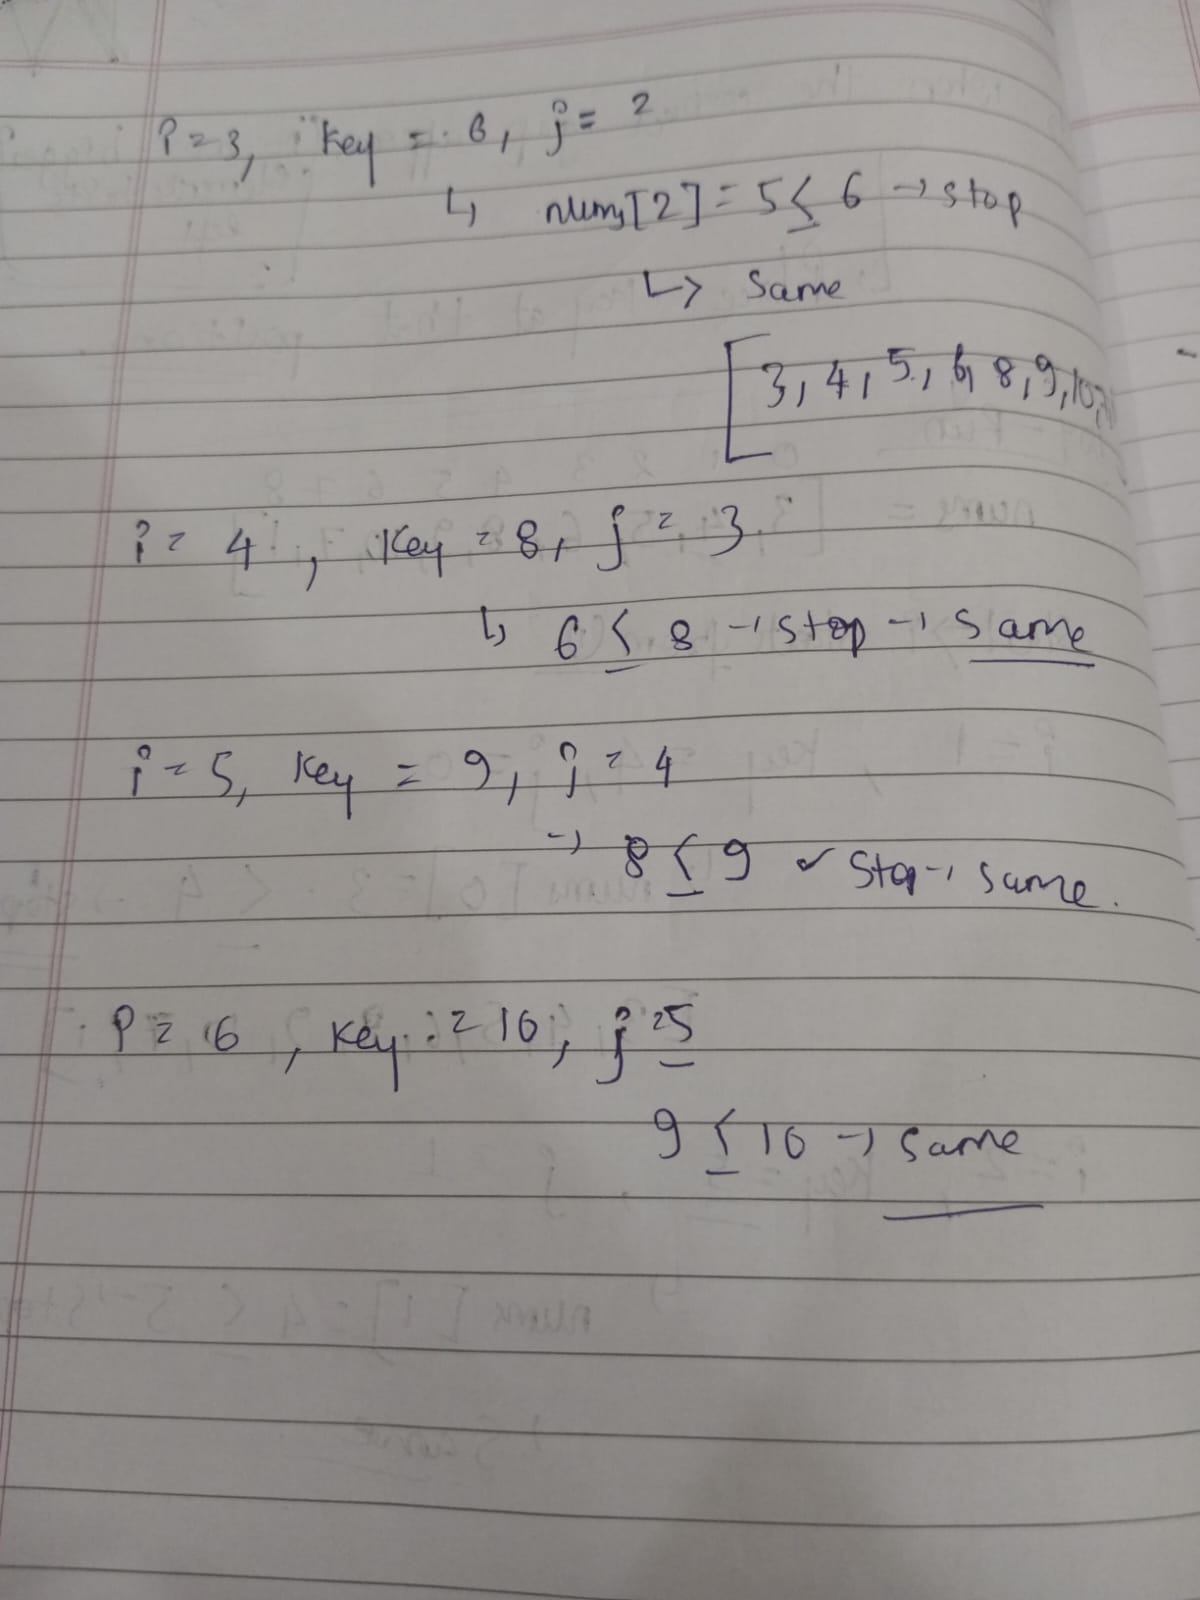 i=3, key = 6, j= 2
↳ nums[2] = 5 ≤ 6 → stop
↳ Same
[3, 4, 5, 6, 8, 9, 10,
i = 4, key = 8, j = 3
↳ 6 ≤ 8 → stop → Same
i = 5, key = 9, j = 4
→ 8 ≤ 9 ✓ Stop → Same.
i = 6, key = 10, j = 5
9 ≤ 10 → Same